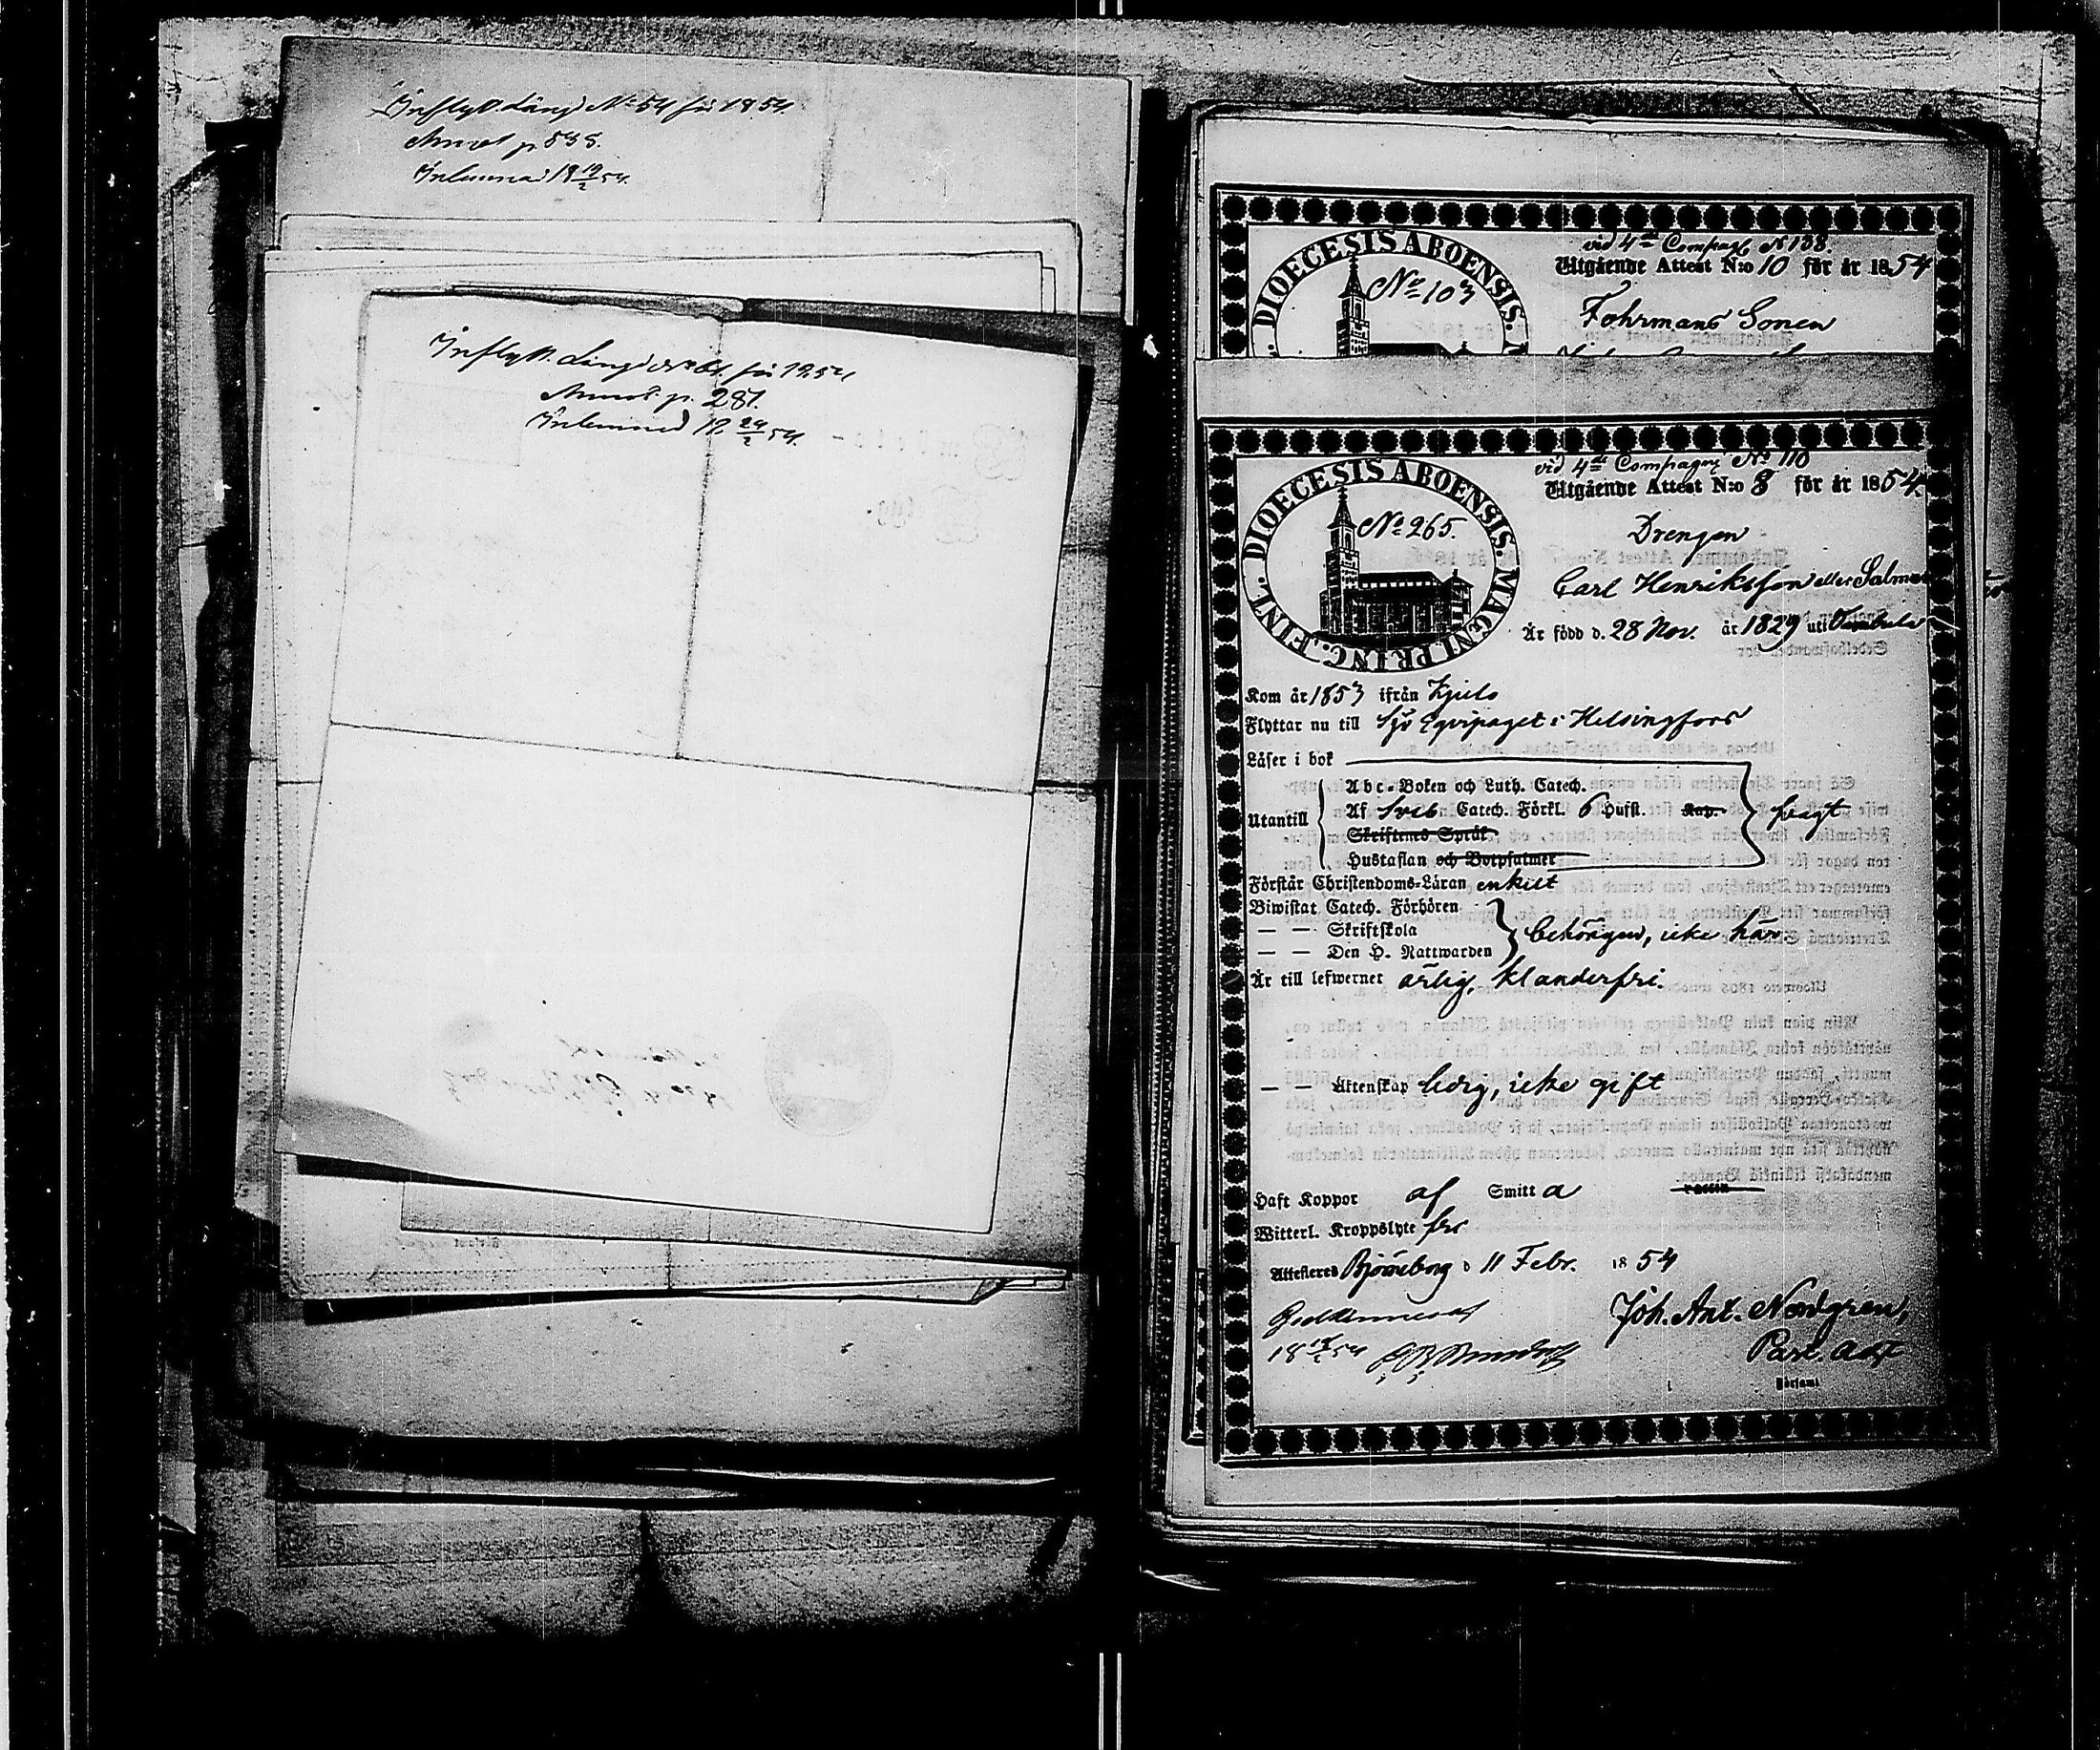 Inflytt. Längd No 54 för 1854.
Annot p 535.
Inlemnad 18 19/2 54.
Inflytt. Längd No för 1854
Annot p. 281.
Inlemnad 18 24/2 54.
DIOECESIS ABOENSIS.
No 103
vid 4de Compag. No 138.
Utgående Attest N:o 10 för år 1854
Fohrmans Sonen
DIOECESIS ABOENSIS. MAGNI PRINC. FINL.
No 265.
vid 4de Compagni No 110
Utgående Attest N:o 8 för år 1854.
Drengen
Carl Henriksson eller Salmen
Är född d. 28 Nov. år 1829 uti
Kom år 1853 ifrån Kjulo
Flyttar nu till Sjö Eqvipaget i Helsingfors
Läser i bok
Utantill
Abc-Boken och Luth. Catech.
Af Sveb Catech. Förkl. 6 Hufst. Kap.
Skriftenes Språk
Hustaflan och Botpsalmer
svagt
Förstår Christendoms-Läran enkelt
Biwistat Catech. Förhören
— — Skriftskola
— — Den H. Nattwarden
behörigen, icke här
Är till lefwernet ärlig, klanderfri.
— — Äktenskap ledig, icke gift
Haft Koppor af Smitta vaccin
Witterl. Kroppslyte fri
Attesteras Björneborg d 11 Febr. 1854
Joh. Ant. Nordgren,
Past. adj
Godkännes af
18 54
Församl